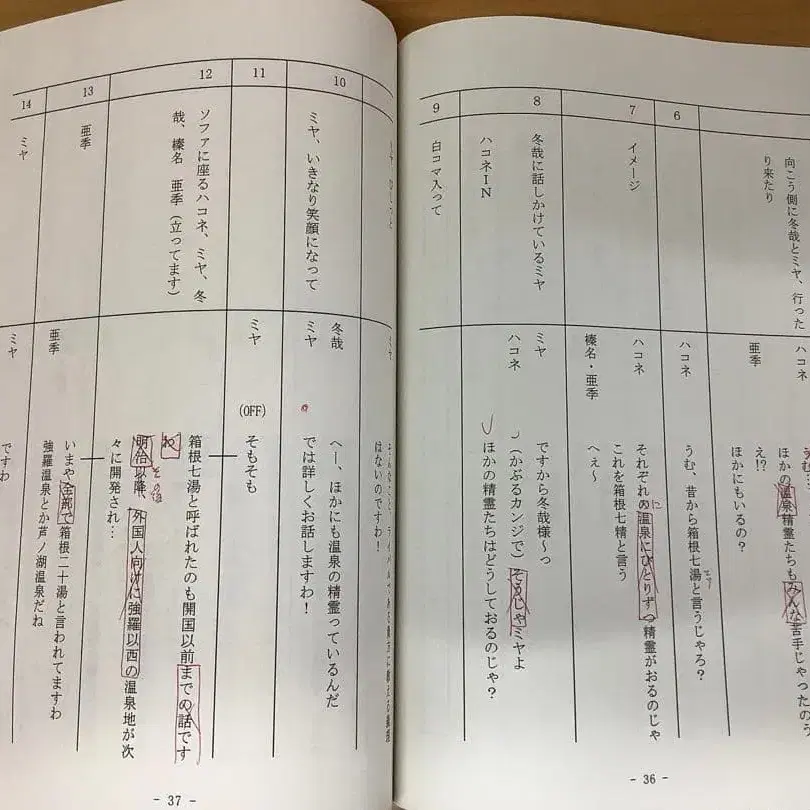 向こう側に冬哉とミヤ、行った
り来たり
ハコネ
ほかの温泉精霊たちもみんな苦手じゃったのう
亜季
え!?
ほかにもいるの?
6
ハコネ
うむ、昔から箱根七湯と言うじゃろ?
7
イメージ
ハコネ
それぞれの温泉にひとりずつ精霊がおるのじゃ
に
これを箱根七精と言う
榛名・亜季
へぇ~
8
冬哉に話しかけているミヤ
ハコネIN
ミヤ
ですから冬哉様~っ
ハコネ
(かぶるカンジで)そうじゃミヤよ
ほかの精霊たちはどうしておるのじゃ?
9
白コマ入って
- 36 -
ミヤ
はないのですわ!
10
ミヤ、いきなり笑顔になって
冬哉
へー、ほかにも温泉の精霊っているんだ
ミヤ
では詳しくお話しますわ!
11
ミヤ
(OFF)
そもそも
12
ソファに座るハコネ、ミヤ、冬
哉、榛名 亜季(立ってます)
箱根七湯と呼ばれたのも開国以前までの話です
わ
明治以降、外国人向けに強羅以西の温泉地が次
その後
々に開発され…
13
亜季
亜季
いまや全部で箱根二十湯と言われてますわ
強羅温泉とか芦ノ湖温泉だね
14
ミヤ
ミヤ
ですわ
- 37 -